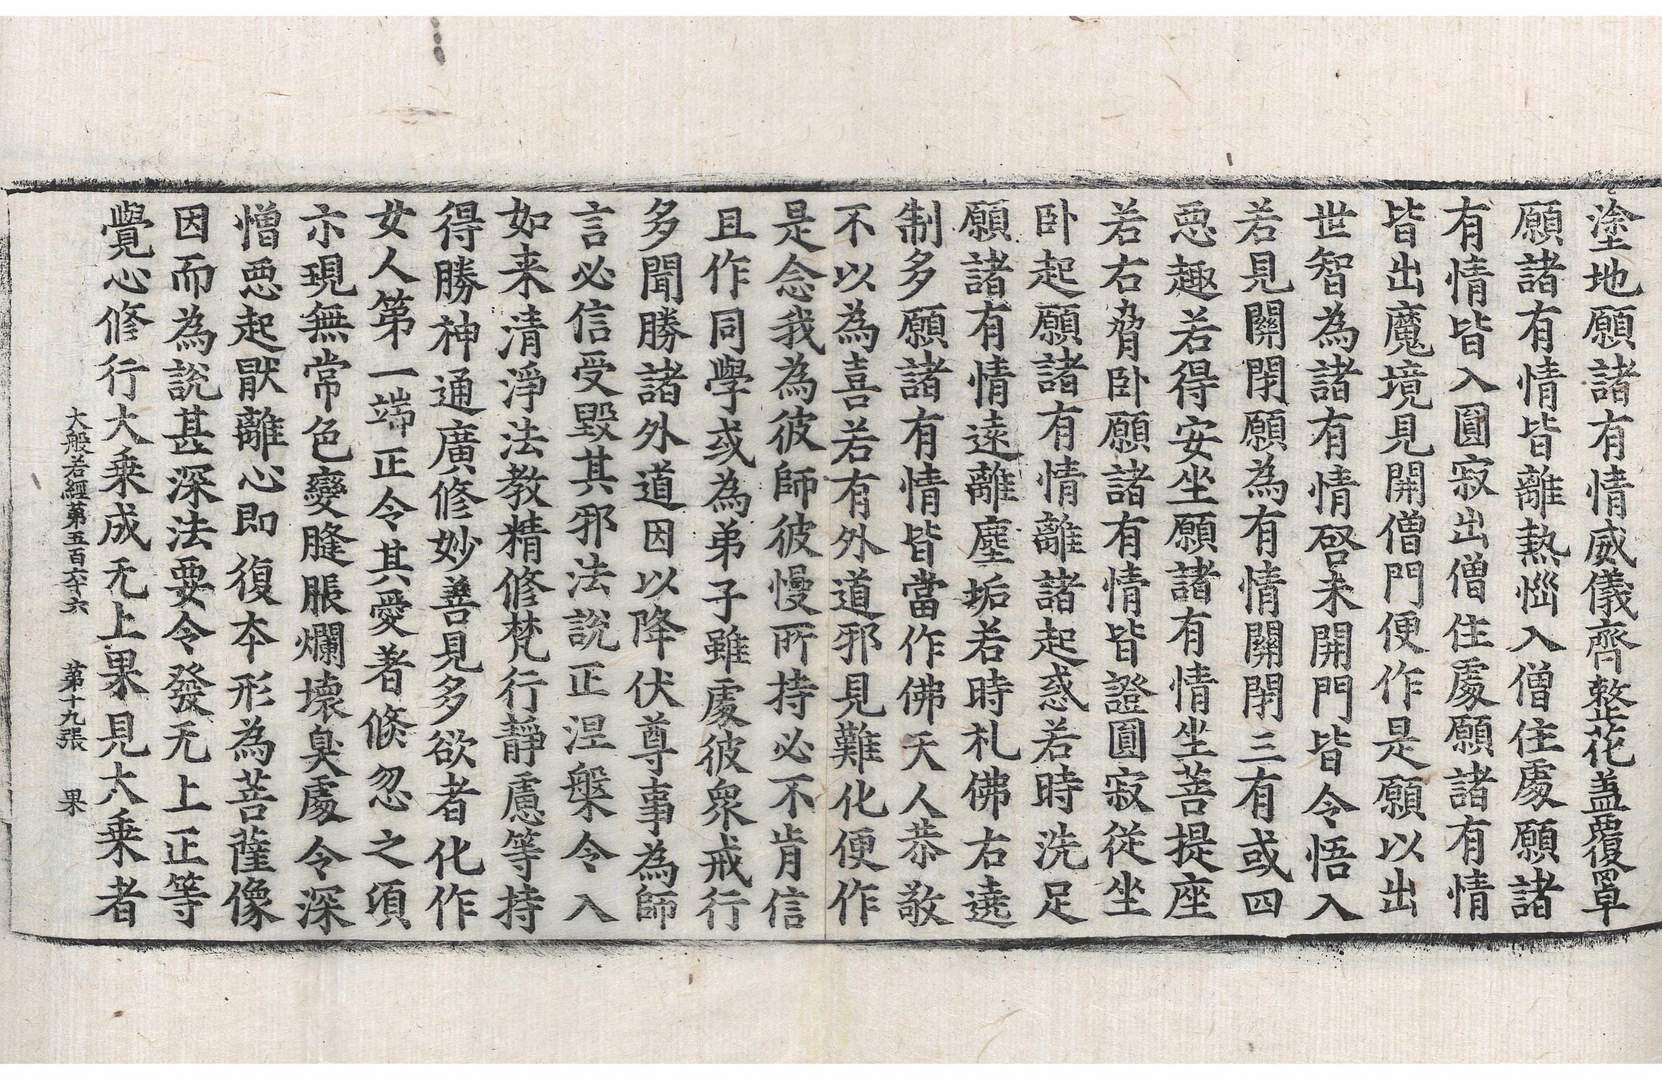 塗地願諸有情威儀齊整花盖覆罩
願諸有情皆離熱惱入僧住處願諸
有情皆入圓寂出僧住處願諸有情
皆出魔境見開僧門便作是願以出
世智為諸有情啓未開門皆令悟入
若見關閇願為有情關閇三有或四
惡趣若得安坐願諸有情坐菩提座
若右脅卧願諸有情皆證圓寂從坐
卧起願諸有情離諸起惑若時洗足
願諸有情遠離塵垢若時礼佛右遶
制多願諸有情皆當作佛天人恭敬
不以為喜若有外道邪見難化便作
是念我為彼師彼慢所持必不肯信
且作同學或為弟子雖處彼衆戒行
多聞勝諸外道因以降伏尊事為師
言必信受毀其邪法說正涅槃令入
如来清淨法教精修梵行靜慮等持
得勝神通廣修妙善見多欲者化作
女人第一端正令其愛著倏忽之頃
亦現無常色變膖脹爛壞臭處令深
憎惡起厭離心即復夲形為菩薩像
因而為說甚深法要令發无上正等
覺心修行大乘成无上果見大乘者
大般若經第五百六十六 第十九張 果